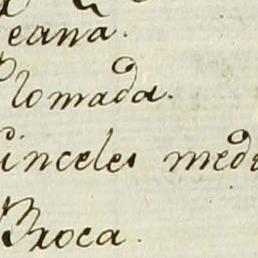 eana.
Plomada.
Cinceles med
Broca.